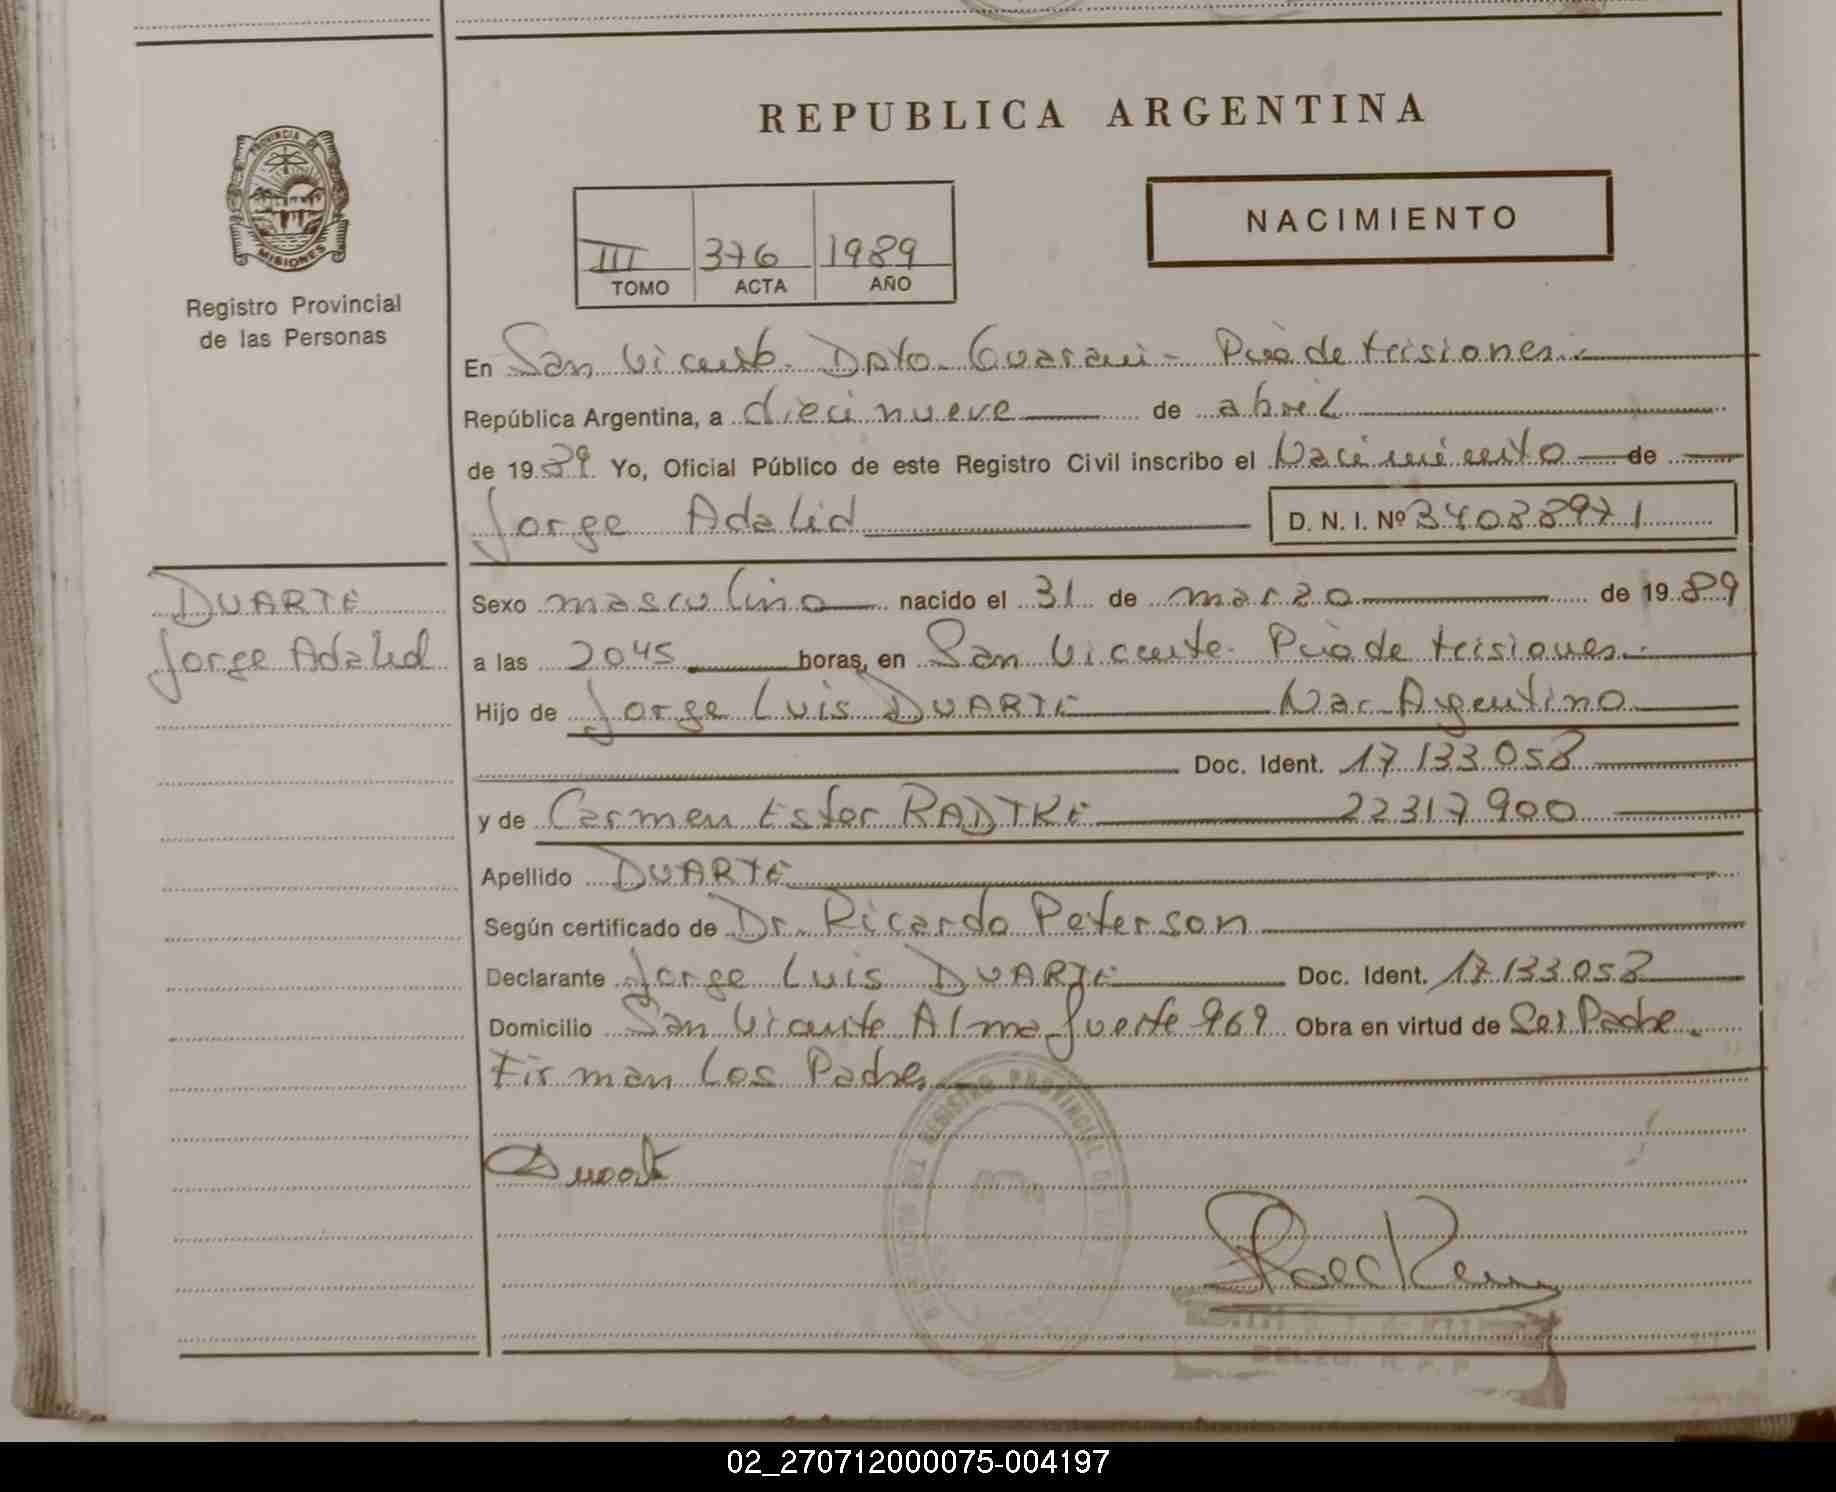 REPUBLICA ARGENTINA
PROVINCIA DE
MISIONES
Registro Provincial
de las Personas
III 376 1989
TOMO ACTA AÑO
NACIMIENTO
En San Vicente. Dpto. Guaraní - Pcia de Misiones.-
República Argentina, a diecinueve de abril
de 1989. Yo, Oficial Público de este Registro Civil inscribo el Nacimiento de
Jorge Adalid D. N. I. Nº 34038971
DUARTE
Jorge Adalid
Sexo masculino nacido el 31 de marzo de 1989
a las 2045 horas, en San Vicente. Pcia de Misiones.-
Hijo de Jorge Luis DUARTE Nac. Argentino
Doc. Ident. 17.133.058
y de Carmen Ester RADTKE 22317900
Apellido DUARTE
Según certificado de Dr. Ricardo Peterson
Declarante Jorge Luis DUARTE Doc. Ident. 17.133.058
Domicilio San Vicente Almafuerte 969 Obra en virtud de Ser Padre.
Firman Los Padres
REGISTRO PROVINCIAL DE LAS
Duarte
DELEG. R. P. P.
02_270712000075-004197